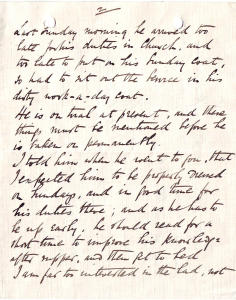 2
Last Sunday morning he arrived too
late for his duties in Church, and
too late to put on his Sunday coat,
so had to sit out the service in his
dirty work-a-day coat.
He is on trial at present, and these
things must be mentioned before he
is taken on permanently.
I told him when he went to you, that
I expected him to be properly dressed
on Sundays, and in good time for
his duties there; and as he has to
be up early, he should read for a
short time to improve his knowledge
after supper, and then get to bed
I am far too interested in the lad, not